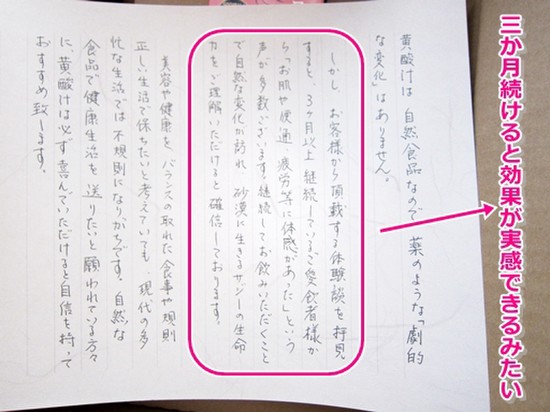 三か月続けると効果が実感できるみたい
黄酸汁は、自然食品なので、薬のような「劇的
な変化」はありません。
しかし、お客様から頂戴する体験談を拝見
すると、3ヶ月以上継続しているご愛飲者様か
ら「お肌や便通、疲労等に体感があった」という
声が多数ございます。継続してお飲みいただくこと
で自然な変化が訪れ、砂漠に生きるサジーの生命
力をご理解いただけると確信しております。
美容や健康を、バランスの取れた食事や規則
正しい生活で保ちたいと考えていても、現代の多
忙な生活では不規則になりがちです。自然な
食品で健康生活を送りたいと願われている方々
に、黄酸汁は必ず喜んでいただけると自信を持って
おすすめ致します。